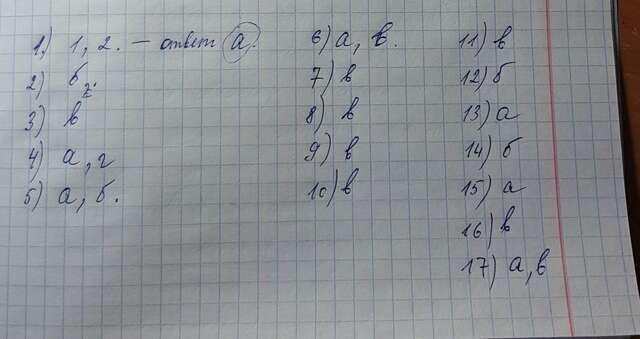 1) 1, 2. – ответ а.
2) б
3) в
4) а, г
5) а, б.
6) а, в.
7) в
8) в
9) в
10) в
11) в
12) б
13) а
14) б
15) а
16) в
17) а, в